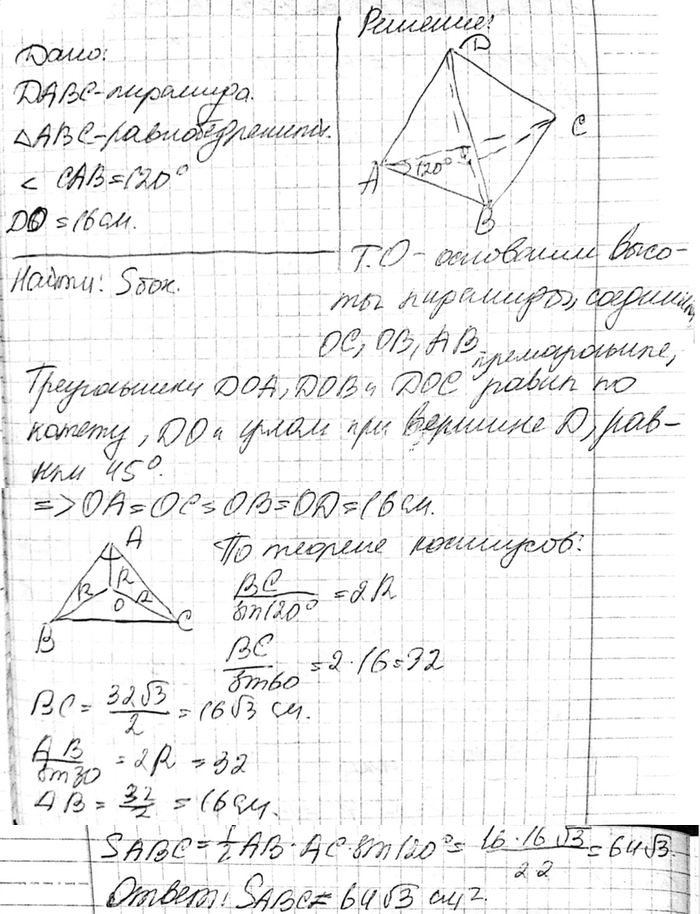 Дано:
DABC-пирамида.
△ABC-равнобедренный.
< CAB=120°
DO =16см.
Найти: Sбок.
Решение:
D
C
A
120°
B
Т.О - основании высо-
ты пирамиды, соединим
OC, OB, AB
Треугольники DOA, DOB и DOC равны по
катету, DO и углам при вершине D, рав-
ным 45°.
=> OA=OC=OB=OD=16см.
A
R
R
R
O
B
C
По теореме косинусов:
BC/sin120° = 2R
BC/sin60 = 2·16=32
BC= 32√3/2 =16√3 см.
AB/sin30 = 2R = 32
AB = 32/2 = 16см.
SABC = 1/2 AB · AC · sin120° = 16·16√3/2·2 = 64√3.
Ответ: SABC= 64√3 см².